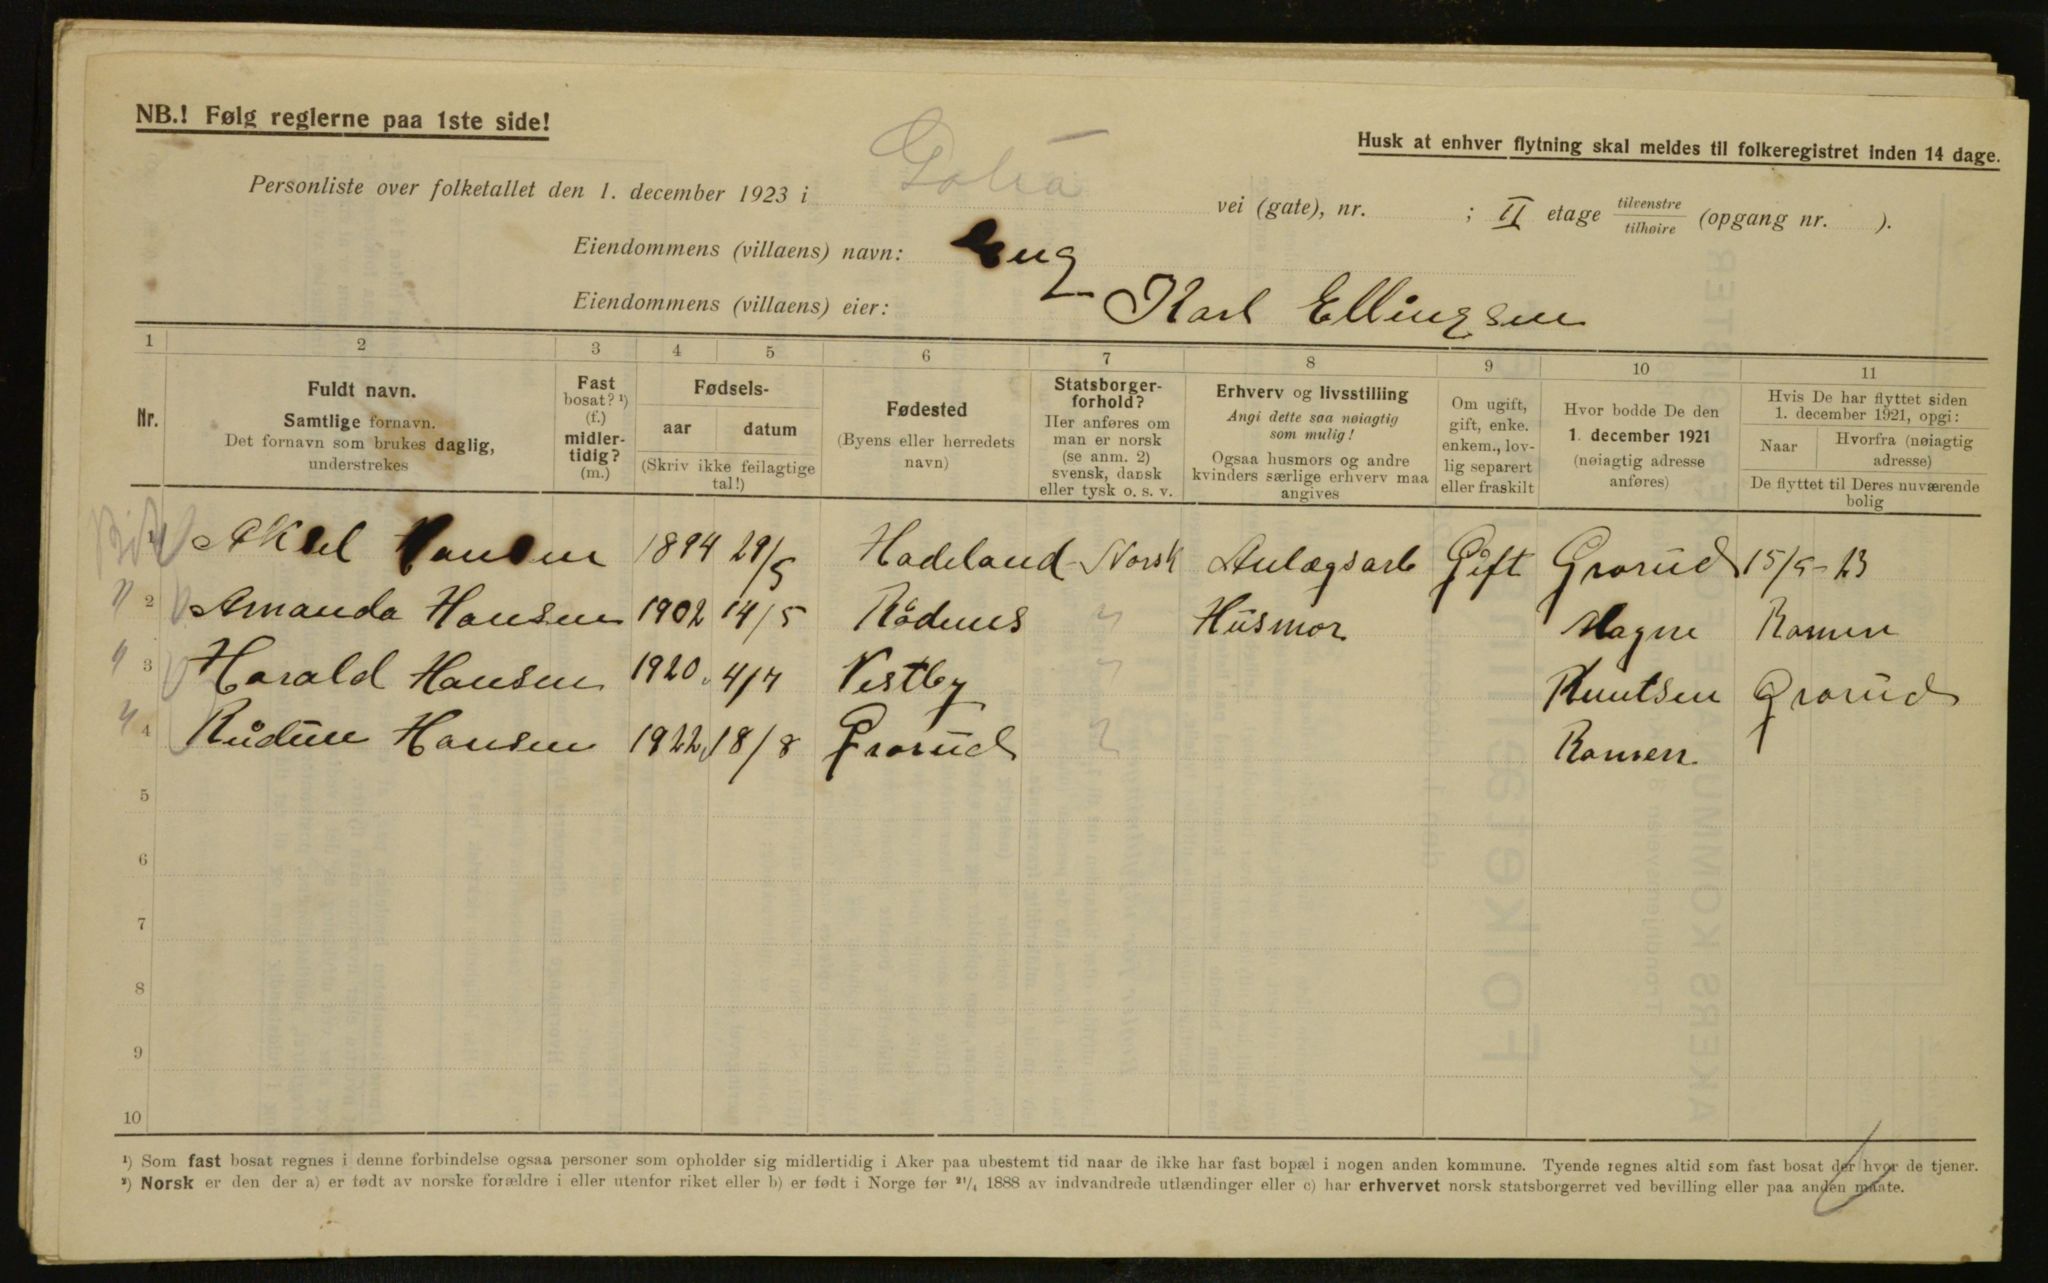 NB.! Følg reglerne paa 1ste side!
Husk at enhver flytning skal meldes til folkeregistret inden 14 dage.
Personliste over folketallet den 1. december 1923 i vei (gate), nr. ; II etage tilvenstre tilhøire (opgang nr. ).
Eiendommens (villaens) navn: Eng
Eiendommens (villaens) eier: Karl Ellingsen
1 2 3 4 5 6 7 8 9 10 11
Nr.
Fuldt navn.
Samtlige fornavn.
Det fornavn som brukes daglig,
understrekes
Fast
bosat? ¹)
(f.)
midler-
tidig?
(m.)
Fødsels-
aar datum
(Skriv ikke feilagtige
tal!)
Fødested
(Byens eller herredets
navn)
Statsborger-
forhold?
Her anføres om
man er norsk
(se anm. 2)
svensk, dansk
eller tysk o. s. v.
Erhverv og livsstilling
Angi dette saa nøiagtig
som mulig!
Ogsaa husmors og andre
kvinders særlige erhverv maa
angives
Om ugift,
gift, enke.
enkem., lov-
lig separert
eller fraskilt
Hvor bodde De den
1. december 1921
(nøiagtig adresse
anføres)
Hvis De har flyttet siden
1. december 1921, opgi:
Naar Hvorfra (nøiagtig
adresse)
De flyttet til Deres nuværende
bolig
Aksel Hansen 1894 29/5 Hadeland Norsk Anlægsarb Gift Grorud 15/9-23
2 Amanda Hansen 1902 14/5 Rådenes " Husmor Magne Ramen
3 Harald Hansen 1920 4/7 Vestby " Knutsen Grorud
4 Rudun Hansen 1922 18/8 Grorud " Ramen
5
6
7
8
9
10
¹) Som fast bosat regnes i denne forbindelse ogsaa personer som opholder sig midlertidig i Aker paa ubestemt tid naar de ikke har fast bopæl i nogen anden kommune. Tyende regnes altid som fast bosat der hvor de tjener.
²) Norsk er den der a) er født av norske forældre i eller utenfor riket eller b) er født i Norge før ²¹/₄ 1888 av indvandrede utlændinger eller c) har erhvervet norsk statsborgerret ved bevilling eller paa anden maate.